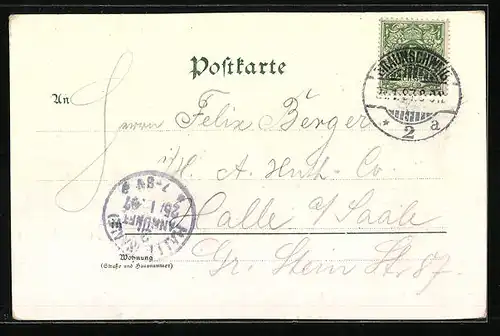 Postkarte
BRAUNSCHWEIG
* 2 a
An
Herrn Felix Berger
A. Huth Co.
Halle a/Saale
Gr. Stein Str 87.
7-8V
25 1 97
ANKUNFT
HALLE (SAALE)
Wohnung
(Straße und Hausnummer)